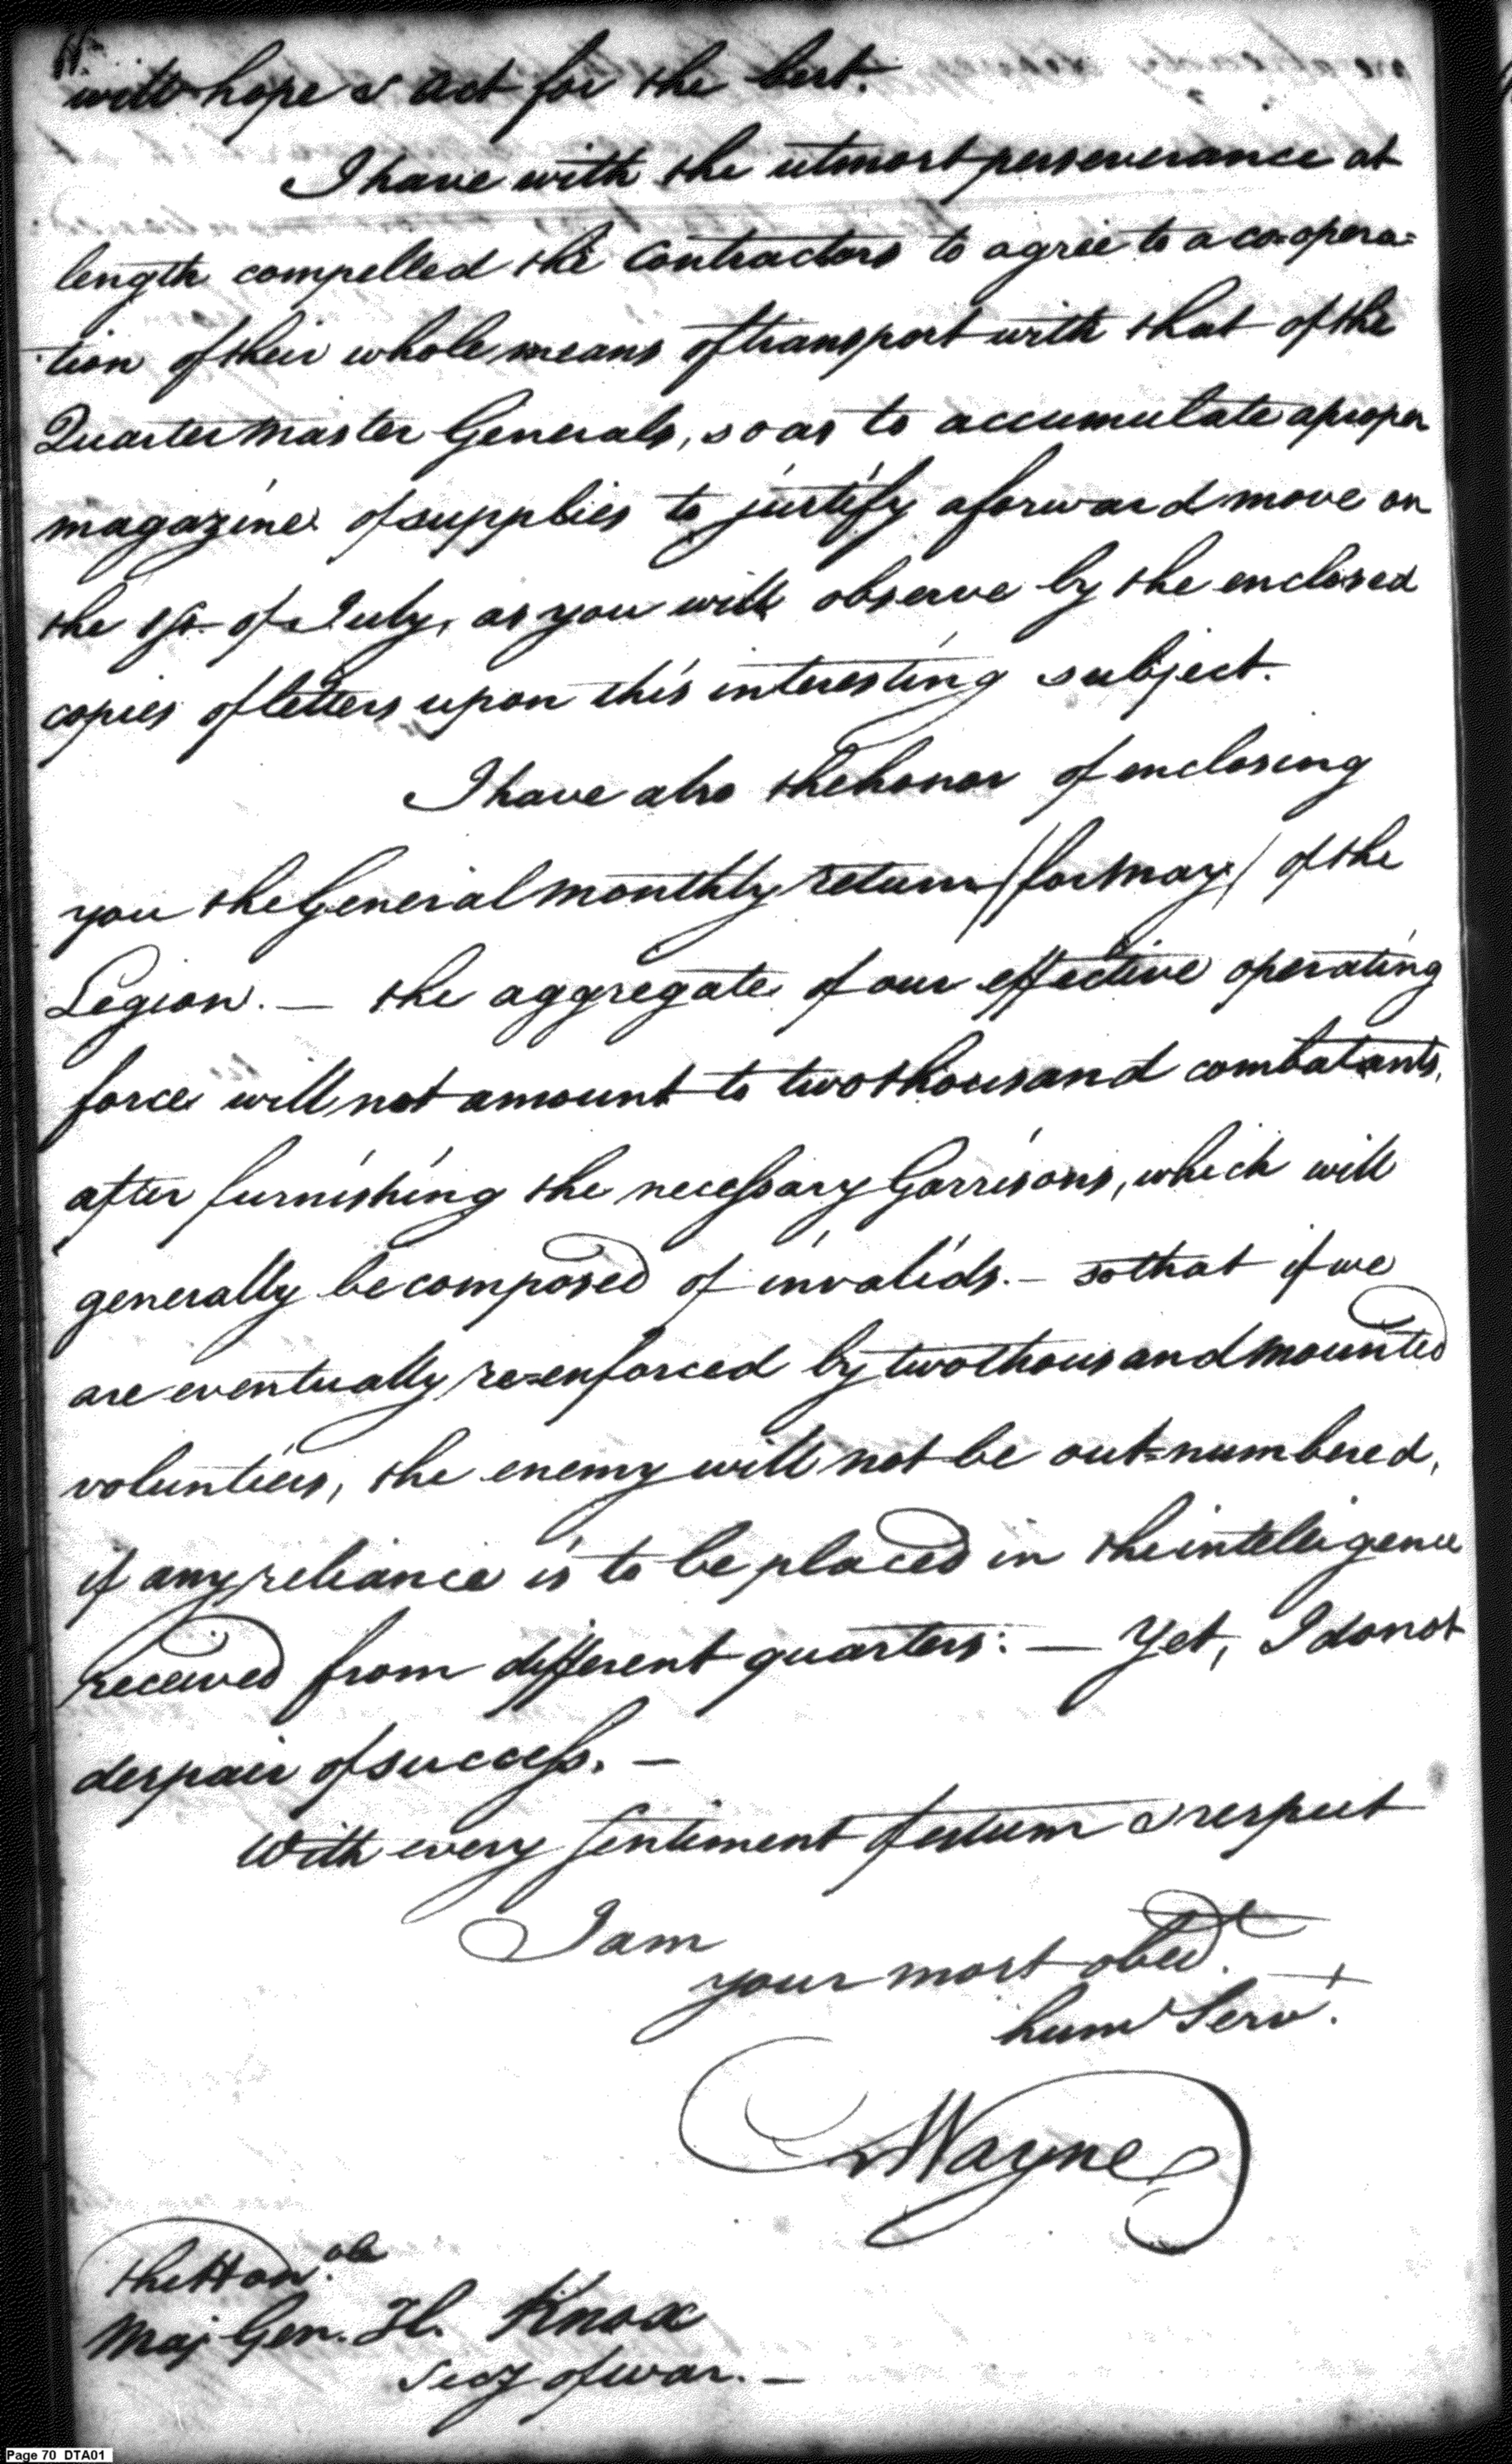 will hope & act for the best.
I have with the utmost perseverance at
length compelled the Contractors to agree to a co=opera=
tion of their whole means of transport with that of the
Quarter Master Generals, so as to accumulate a proper
magazine of supplies to justify a forward move on
the 1st of July, as you will observe by the enclosed
copies of letters upon this interesting subject.
I have also the honor of enclosing
you the General monthly return (for May) of the
Legion. — the aggregate of our effective operating
force will not amount to two thousand combatants,
after furnishing the necessary Garrisons, which will
generally be composed of invalids. — so that if we
are eventually re=enforced by two thousand mounted
volunteers, the enemy will not be out=numbered,
if any reliance is to be placed in the intelligence
received from different quarters: — Yet, I do not
despair of success. —
With every sentiment of esteem & respect
I am
your most obedt.
hum Servt.
Wayne
The Honble
Maj Gen. H. Knox
Secy of war. —
Page 70 DTA01